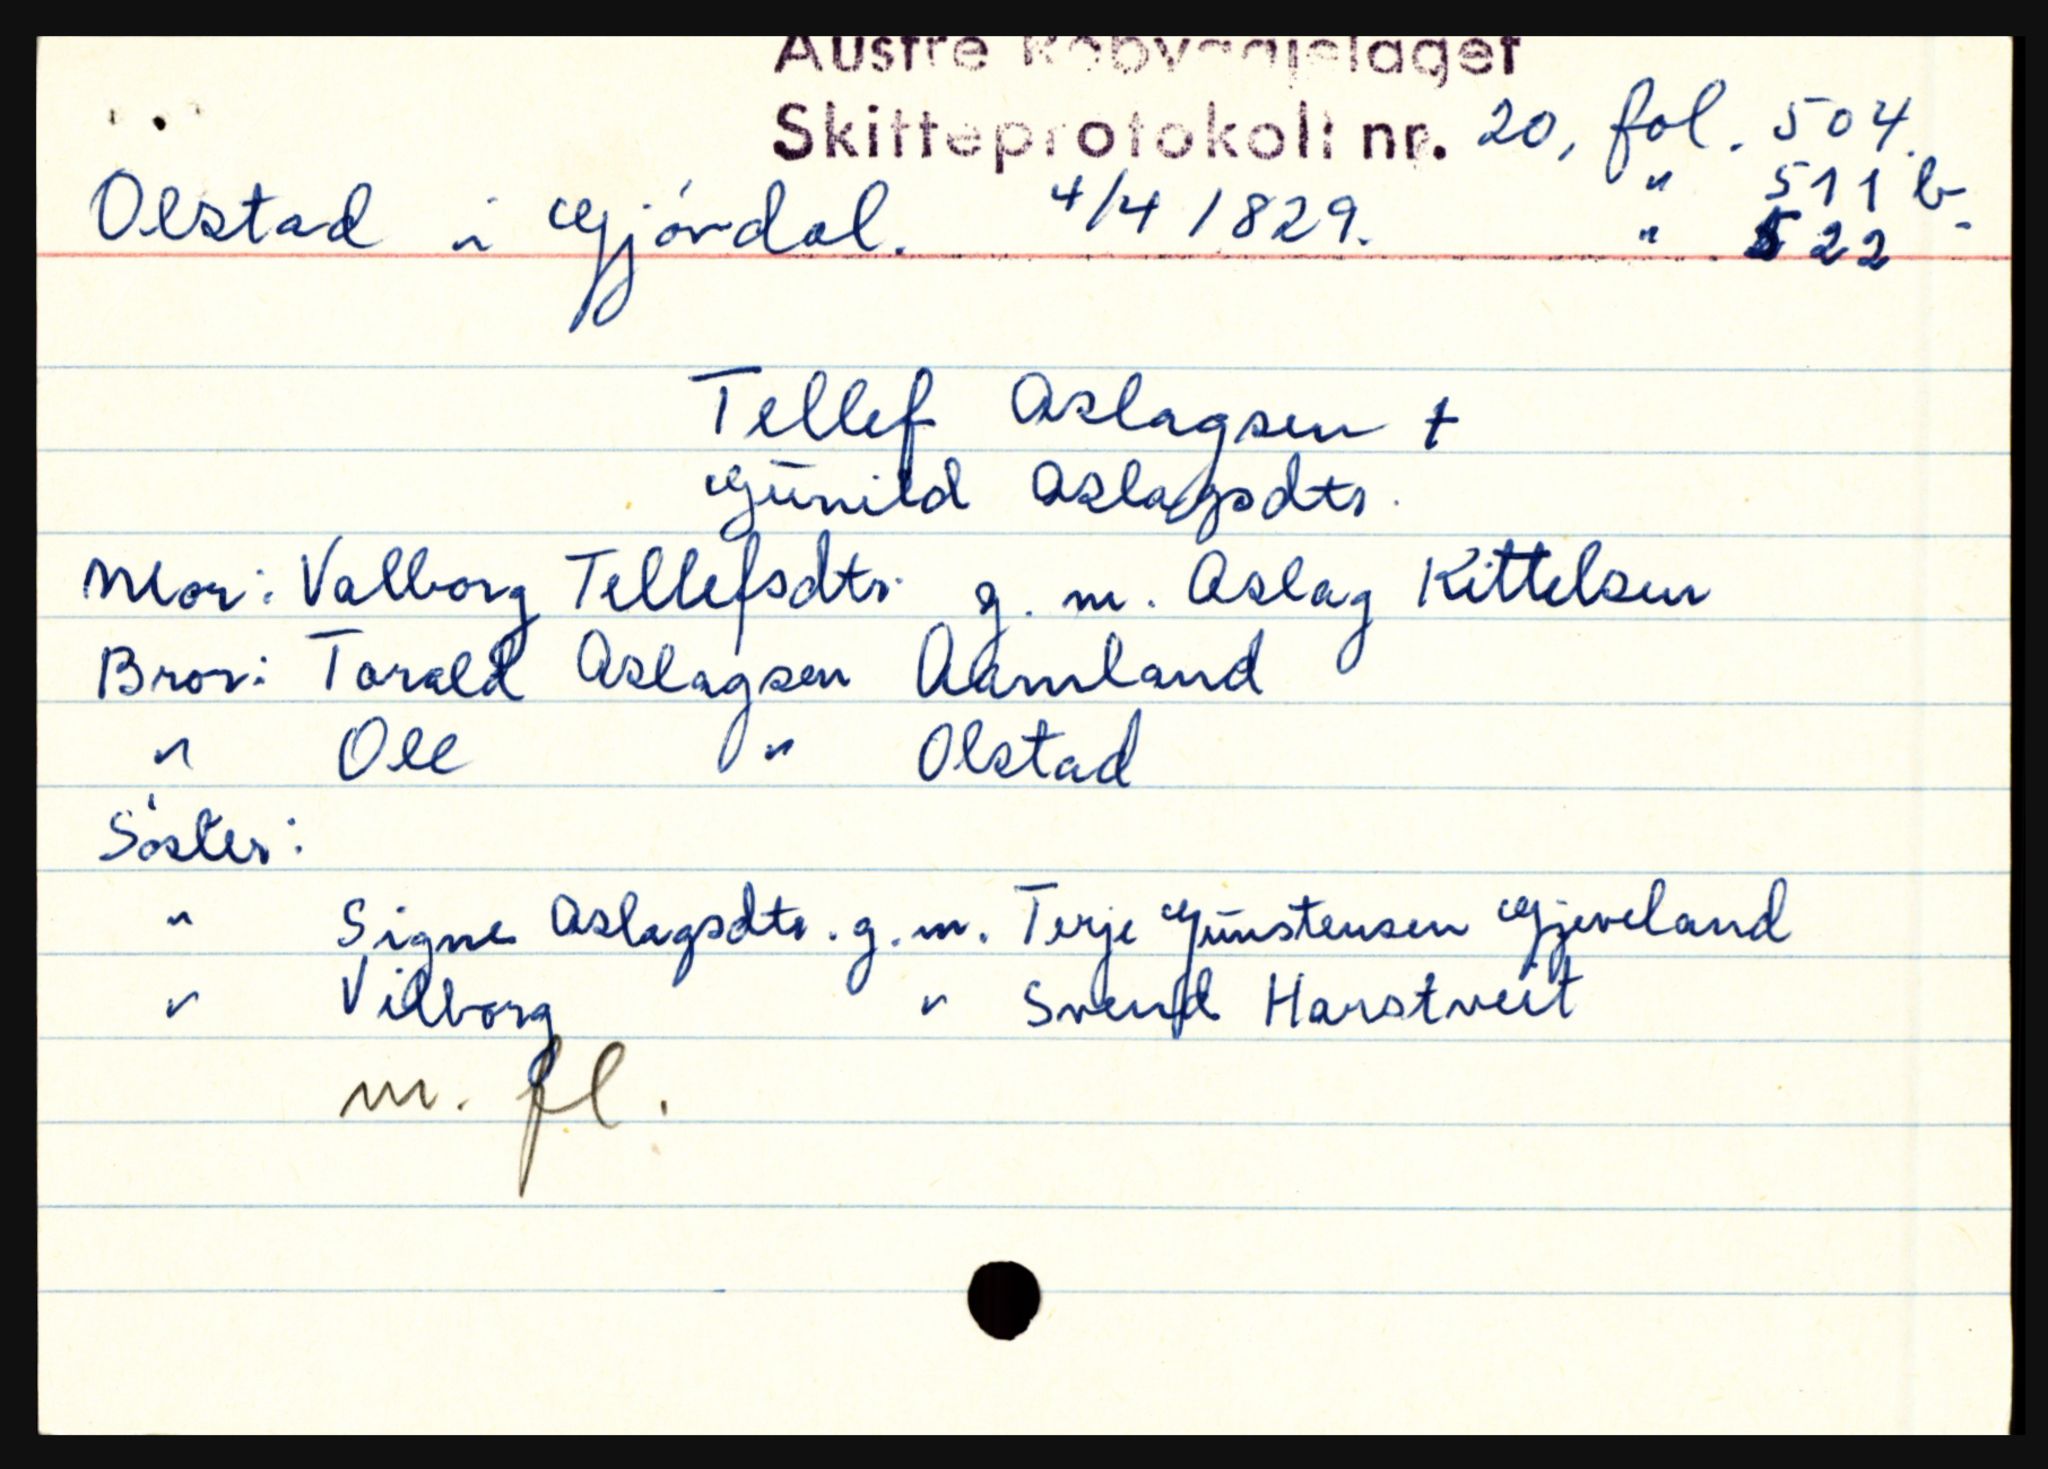 Austre Robyggjelaget
Skifteprotokoll nr. 20, fol. 504.
" 511 b.
Olstad i Gjövdal. 4/4 1829. " 522
Tellef Aslagsen +
Gunild Aslagsdtr.
Mor: Valborg Tellefsdtr. g. m. Aslag Kittelsen
Bror: Torald Aslagsen Aamland
" Ole " Olstad
Söster:
" Signe Aslagsdtr. g. m. Terje Gunstensen Gjeveland
" Vilborg " Svend Harstveit
m. fl.